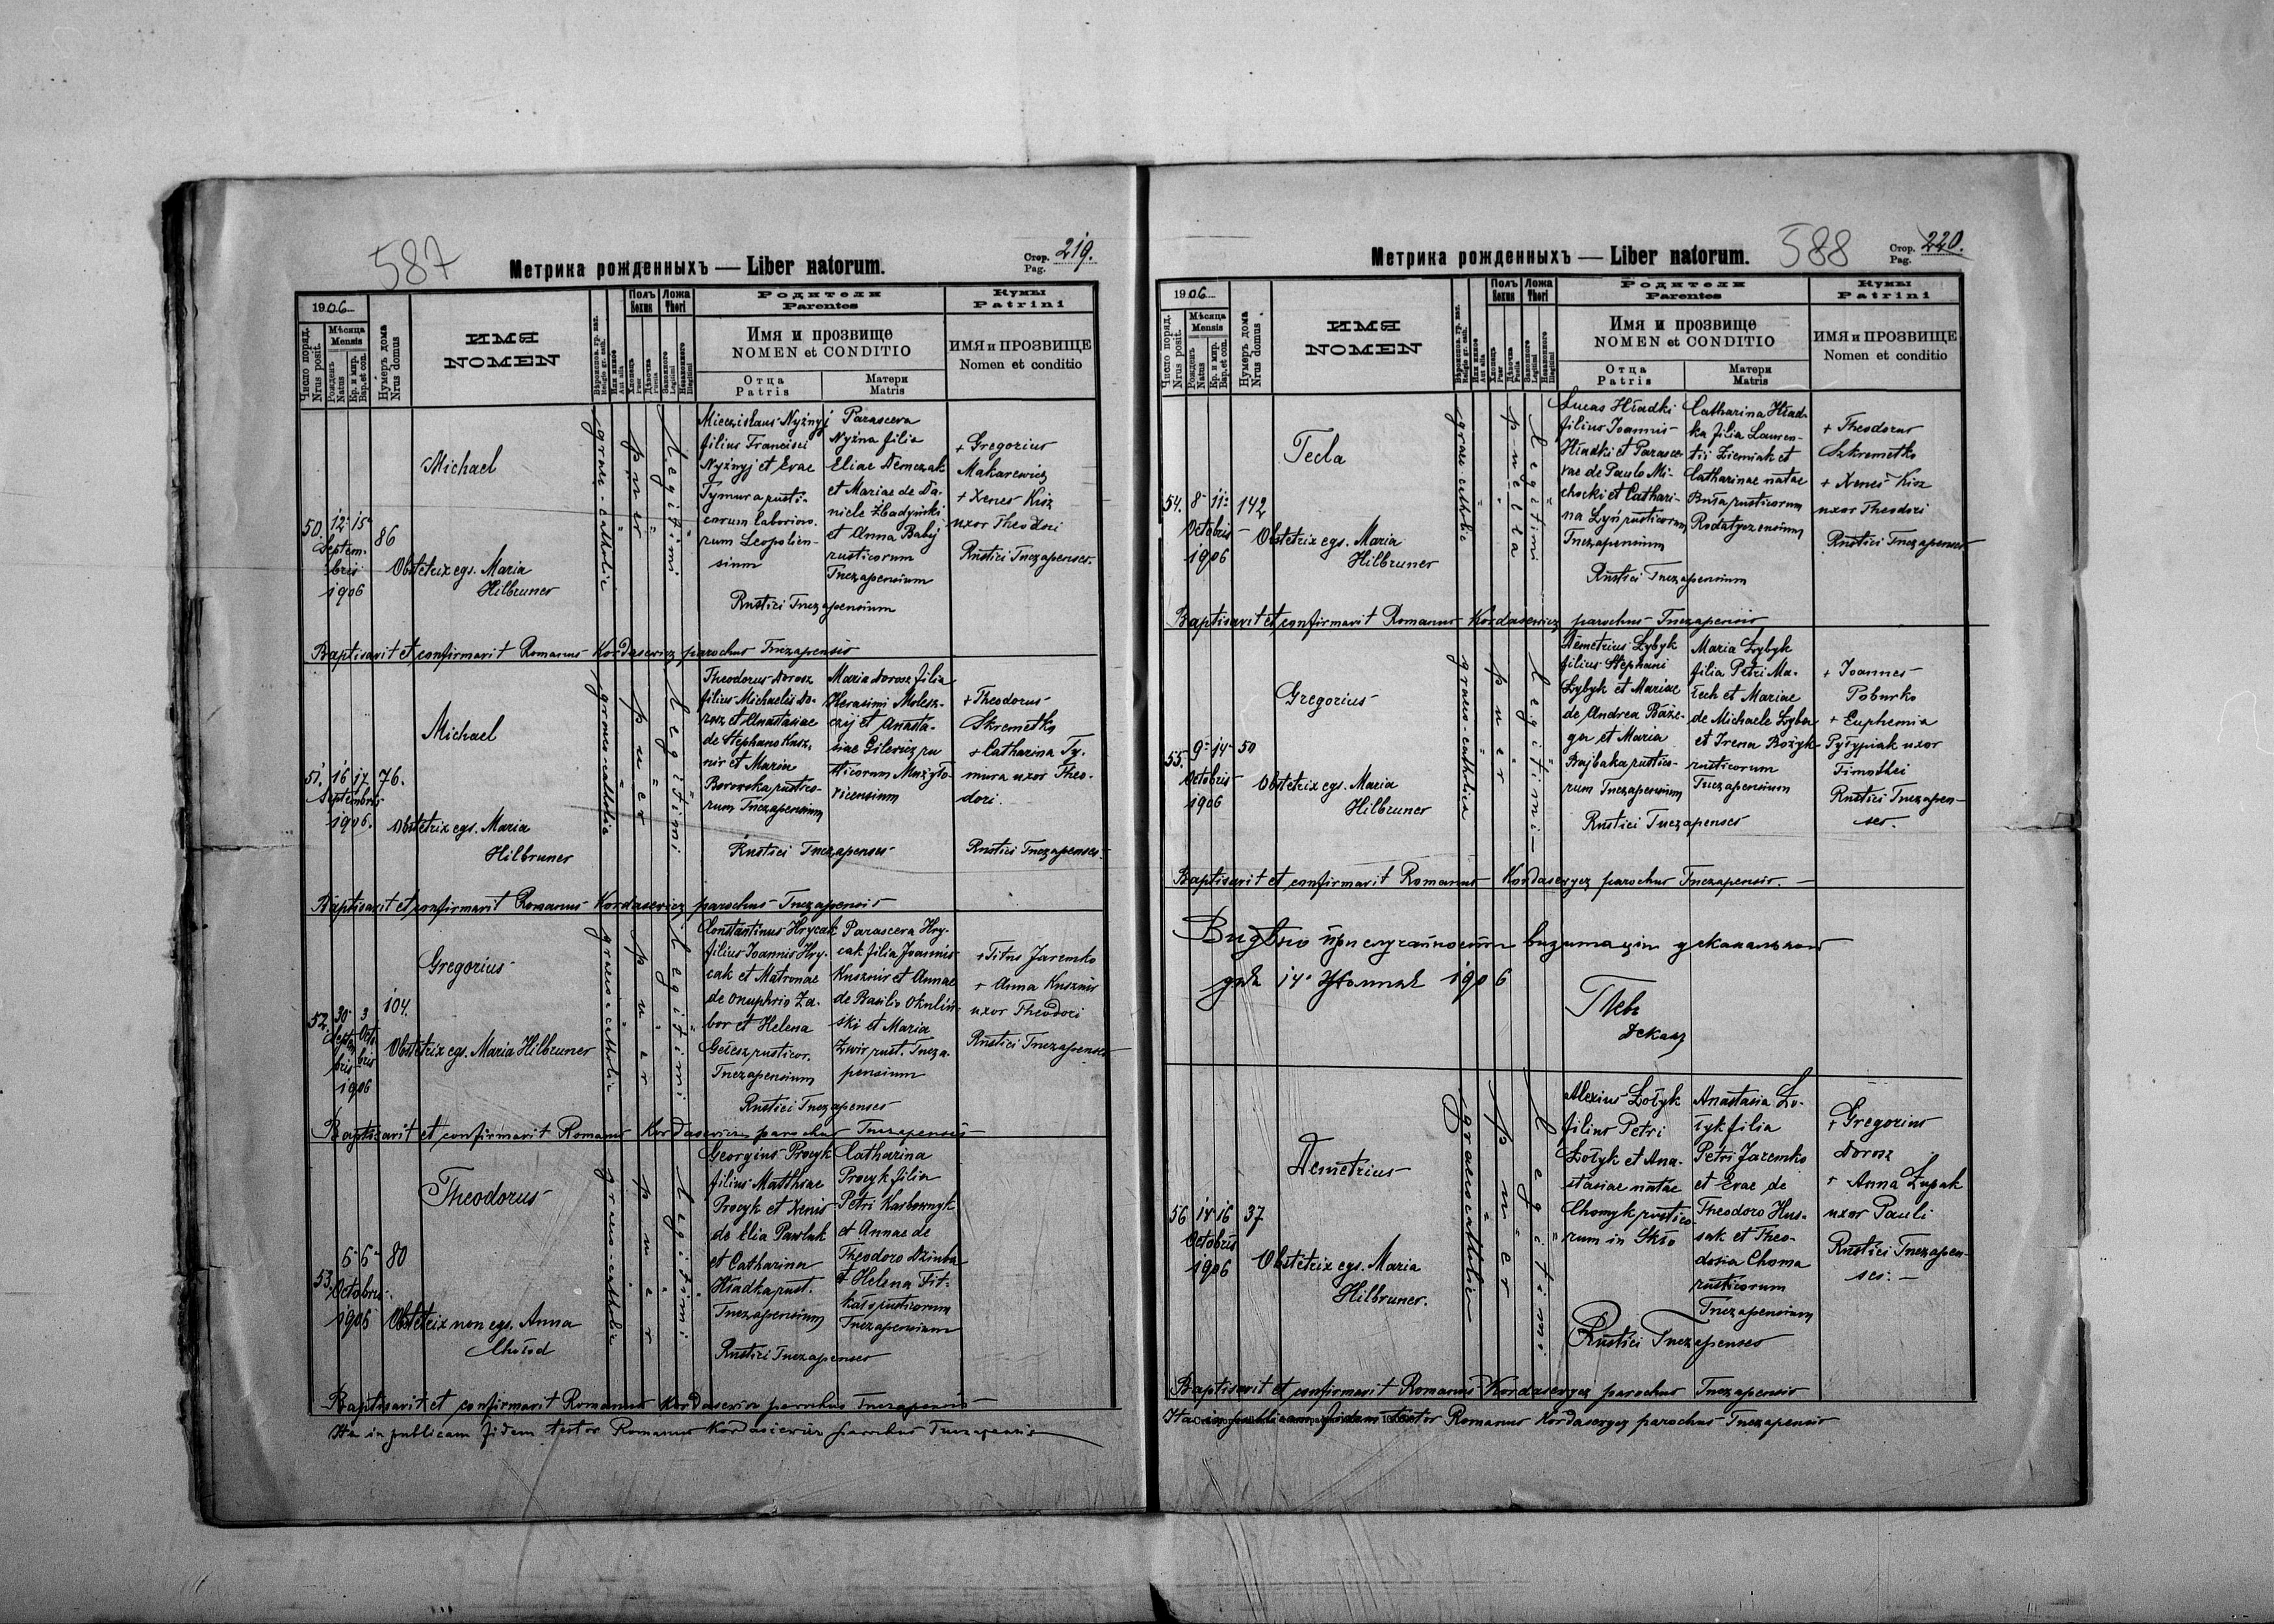 587
Метрика рожденныхъ — Liber natorum.
Стор. Pag. 219.
1906
Число поряд. Nrus posit.
Мѣсяца Mensis
Рожденъ Natus
Кр. и мир. Bap. et con.
Нумеръ дома Nrus domus
ИМЯ
NOMEN
Полъ Sexus
Хлопець Puer
Дѣвочка Puella
Ложа Thori
Законного Legitimi
Незаконного Illegitimi
Родители
Parentes
Имя и прозвище
NOMEN et CONDITIO
Отца Patris
Матери Matris
Кумы
Patrini
ИМЯ и ПРОЗВИЩЕ
Nomen et conditio
50.
12 15
Septem-
bris
1906
86
Michael
Obstetrix egs. Maria
Hilbruner
graeco-catholic
puer
legitimi
Mieczislaus Nyżnyj
filius Francisci
Nyżnyj et Evae
Tymura rusti-
corum laborioso-
rum Leopolien-
sium
Parasceva
Nyżna filia
Eliae Demczak
et Mariae de Da-
niele Zbadyński
et Anna Babij
rusticorum
Tuczapensium
Rustici Tuczapensium
+ Gregorius
Makarewicz
+ Xenes Kisz
uxor Theodori
Rustici Tuczapenses.
Baptisavit et confirmavit Romanus Kordasewicz parochus Tuczapensis
51.
16 17
Septembris
1906.
76.
Michael
Obstetrix egs. Maria
Hilbruner
graeco-catholic
puer
legitimi
Theodorus Dorosz
filius Michaelis Do-
rosz et Anastasiae
de Stephano Kusz-
nir et Maria
Borowska rustico-
rum Tuczapensium
Maria Dorosz filia
Herasimi Molesz-
czij et Anasta-
siae Gilewicz ru
sticorum Mużyło-
vicensium
Rustici Tuczapenses
+ Theodorus
Skremetko
+ Catharina Ty-
mura uxor Theo-
dori.
Rustici Tuczapenses
Baptisavit et confirmavit Romanus Kordasewicz parochus Tuczapensis
52.
30 3
Septem Octo
bris bris
1906
104.
Gregorius
Obstetrix egs. Maria Hilbruner
graeco-catholic
puer
legitimi
Constantinus Hrycak
filius Joannis Hry-
cak et Matronae
de Onuphrio Za-
bor et Helena
rusticor.
Tuczapensium
Parasceva Hry-
cak filia Joannis
Kusznir et Annae
de Basilio Okuliń-
ski et Maria
Zwir rust. Tucza-
pensium
Rustici Tuczapenses
+ Titus Jaremko
+ Anna Kusznir
uxor Theodori
Rustici Tuczapenses
Baptisavit et confirmavit Romanus Kordasewicz parochus Tuczapensis
53.
6 6
Octobris
1906
80
Theodorus
Obstetrix non egs. Anna
Chołod
graeco-catholic
puer
legitimi
Georgius Procyk
filius Matthiae
Procyk et Xenis
de Elia Pawluk
et Catharina
Hładka rust.
Tuczapensium
Catharina
Procyk filia
Petri Karbownyk
et Annae de
Theodoro Dziuba
et Helena Fit-
kało rusticorum
Tuczapensium
Rustici Tuczapenses
Baptisavit et confirmavit Romanus Kordasewicz parochus Tuczapensis
Ita in publicam fidem testor Romanus Kordasiewicz parochus Tuczapensis
588
Метрика рожденныхъ — Liber natorum.
Стор. Pag. 220.
1906
Число поряд. Nrus posit.
Мѣсяца Mensis
Рожденъ Natus
Кр. и мир. Bap. et con.
Нумеръ дома Nrus domus
ИМЯ
NOMEN
Полъ Sexus
Хлопець Puer
Дѣвочка Puella
Ложа Thori
Законного Legitimi
Незаконного Illegitimi
Родители
Parentes
Имя и прозвище
NOMEN et CONDITIO
Отца Patris
Матери Matris
Кумы
Patrini
ИМЯ и ПРОЗВИЩЕ
Nomen et conditio
54.
8 11
Octobris
1906
142
Tecla
Obstetrix egs. Maria
Hilbruner
graeco-catholic
puella
legitimi
Lucas Hładki
filius Joannis
Hładki et Parasce-
vae de Paulo Mi-
chocki et Cathari-
na Łyń rusticorum
Tuczapensium
Catharina Hład-
ka filia Lauren-
tii Ziemiak et
Catharinae natae
Buła rusticorum
Rodatyczensium
Rustici Tuczapensium
+ Theodorus
Szkremetko
+ Xenes Kisz
uxor Theodori
Rustici Tuczapenses
Baptisavit et confirmavit Romanus Kordasewicz parochus Tuczapensis
55.
9 14
Octobris
1906
50
Gregorius
Obstetrix egs. Maria
Hilbruner
graeco-catholica
puer
legitimi
Demetrius Łybyk
filius Stephani
Łybyk et Mariae
de Andrea
et Maria
Bajbaka rustico-
rum Tuczapensium
Maria Łybyk
filia Petri Ma-
łech et Mariae
de Michaele
et Irena Bożyk
rusticorum
Tuczapensium
Rustici Tuczapenses
+ Joannes
Poburko
+ Euphemia
Pyłypiak uxor
Timothei
Rustici Tuczapen-
ses.
Baptisavit et confirmavit Romanus Kordasewycz parochus Tuczapensis. —
Видѣно при случайности визитаціи деканальной
дня 14 1906
Декан
56
14 16
Octobris
1906
37
Demetrius
Obstetrix egs. Maria
Hilbruner.
graeco catholica
puer
legitimi
Alexius Łożyk
filius Petri
Łożyk et Ana-
stasiae natae
Chomyk rustico-
rum in Skło
Anastasia Ło-
żyk filia
Petri Jaremko
et Evae de
Theodoro Hus-
sak et Theo-
dosia Choma
rusticorum
Tuczapensium
Rustici Tuczapenses
+ Gregorius
Dorosz
+ Anna Łupak
uxor Pauli
Rustici Tuczapen-
ses. —
Baptisavit et confirmavit Romanus Kordasewycz parochus Tuczapensis
Ita in publicam fidem testor Romanus Kordasewycz parochus Tuczapensis